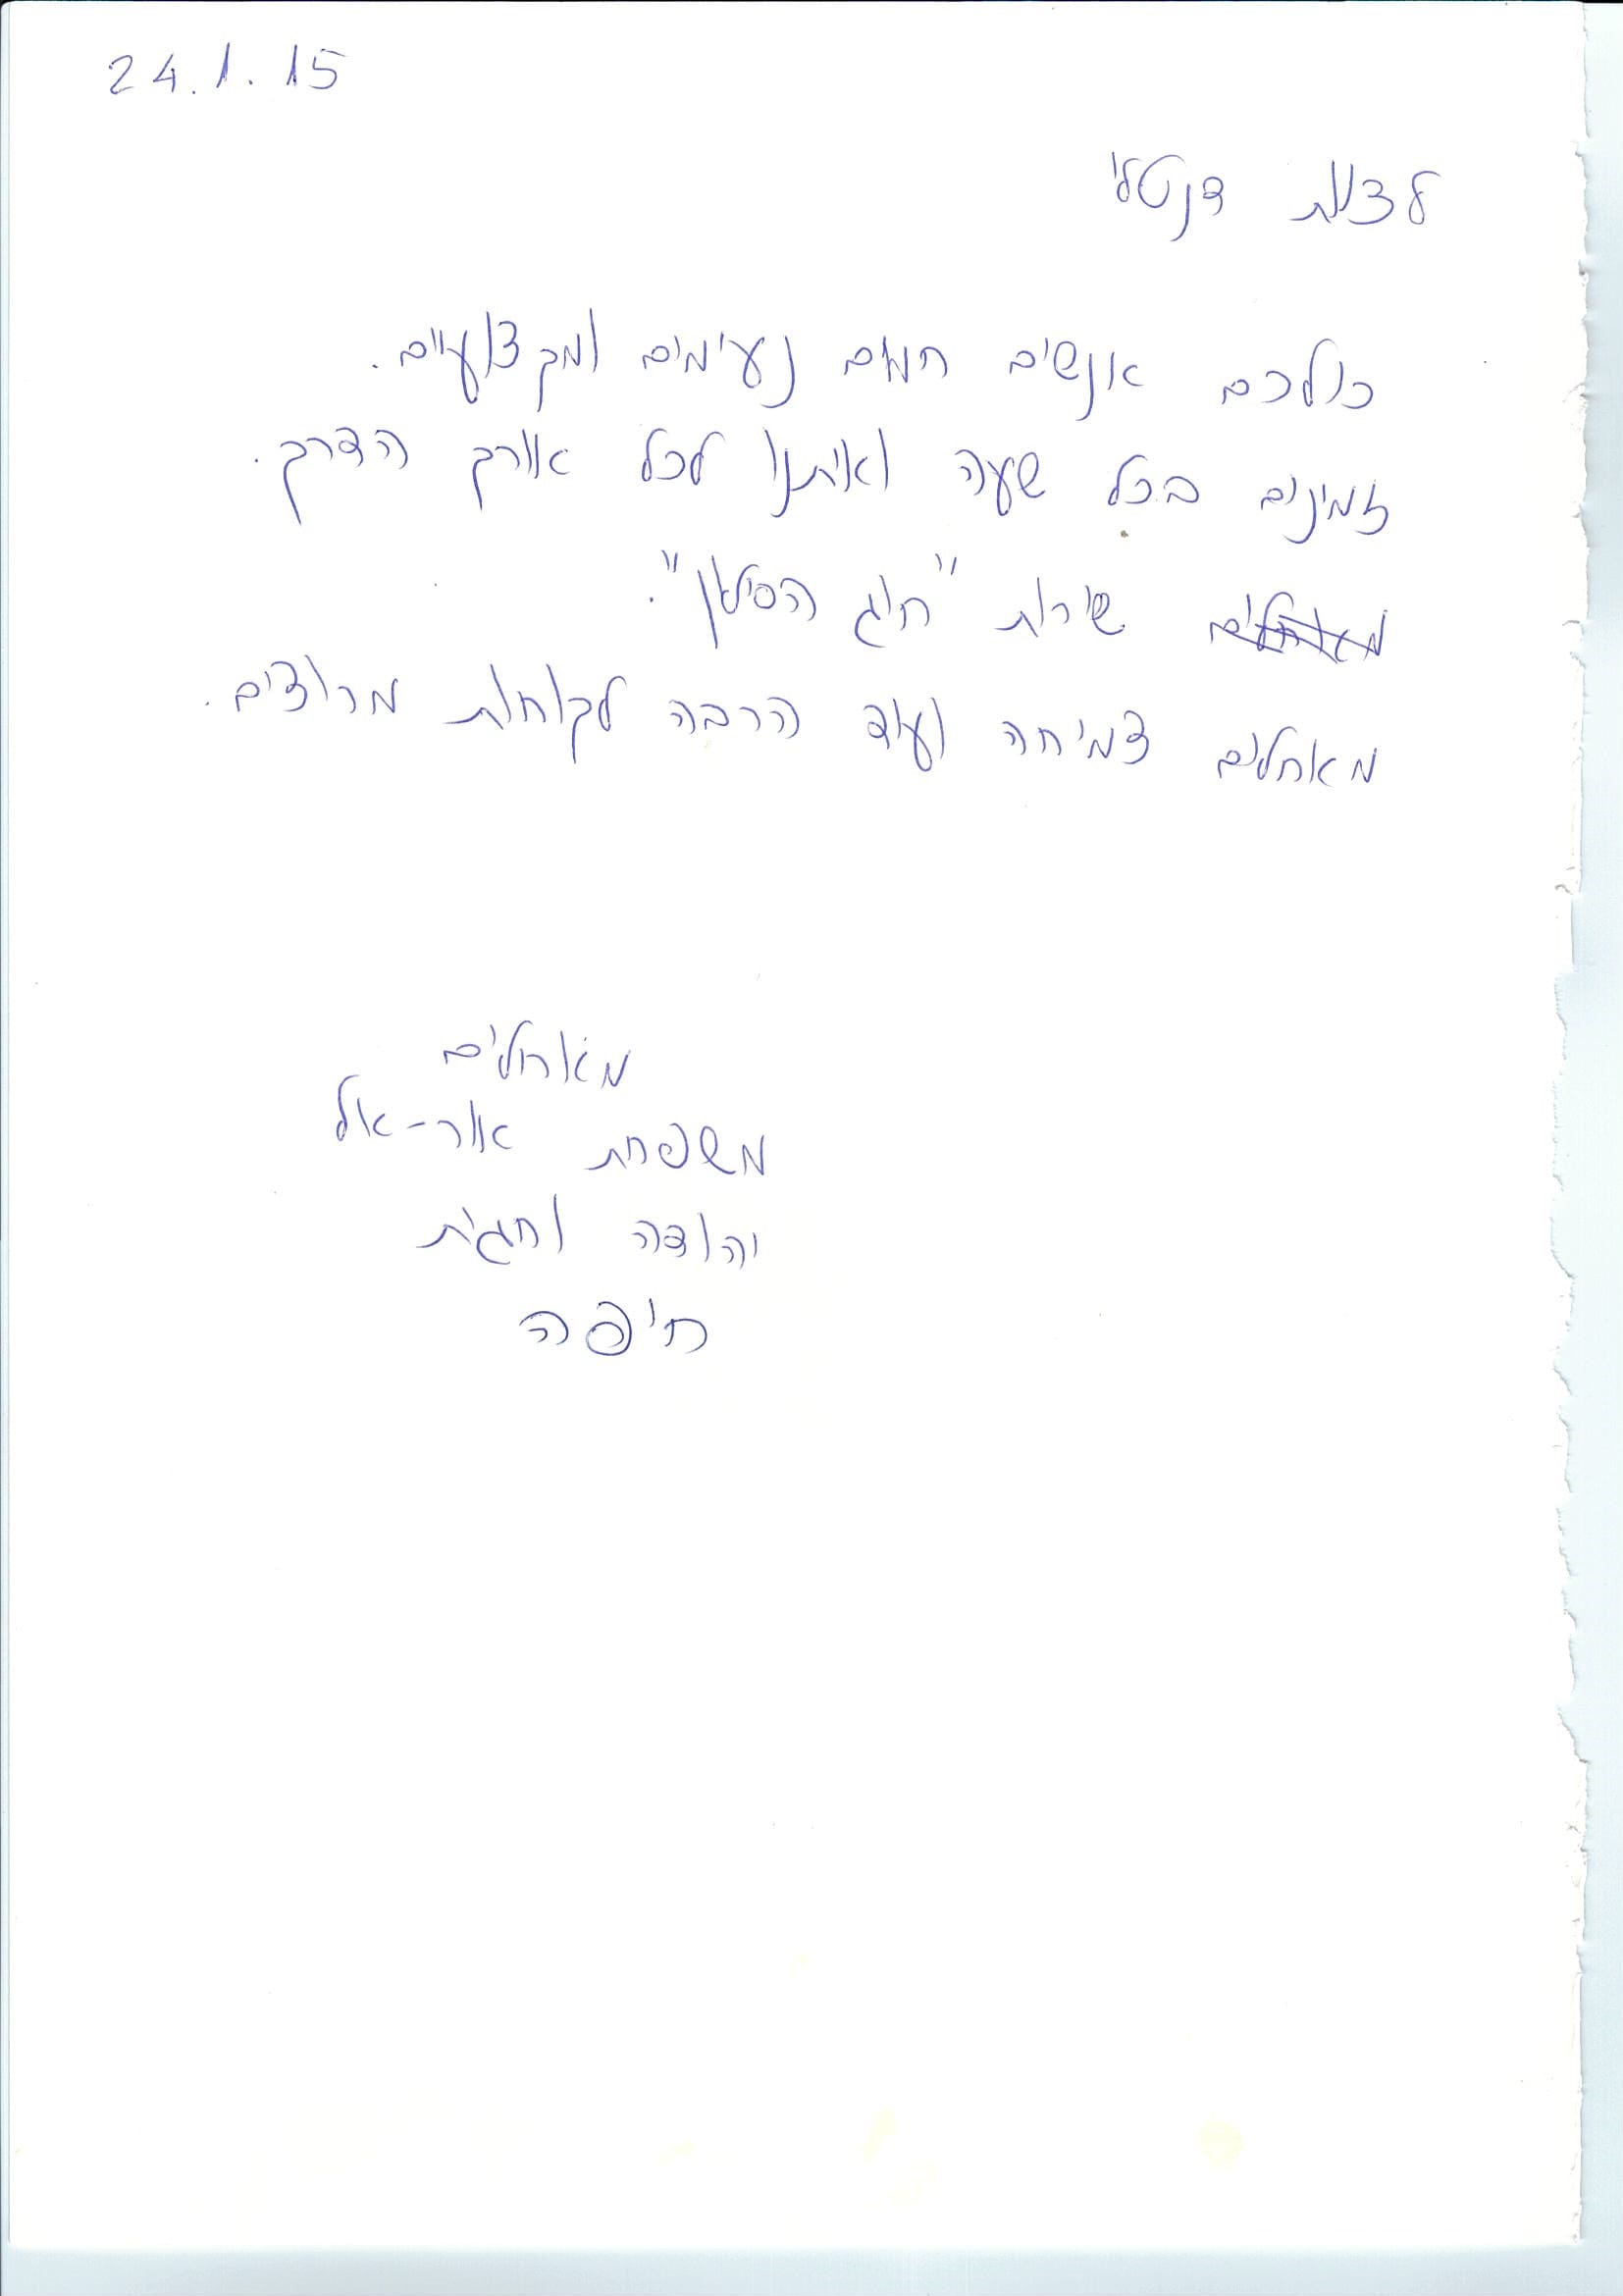 24.1.15
לצוות דנטלי
כולכם אנשים חמים נעימים ומקצועיים.
זמינים בכל שעה ואיתנו לכל אורך הדרך.
שירות "חוג הסילון".
מאחלים צמיחה ועוד הרבה לקוחות מרוצים.
מאחלים
משפחת אור-אל
יהודה וחגית
חיפה